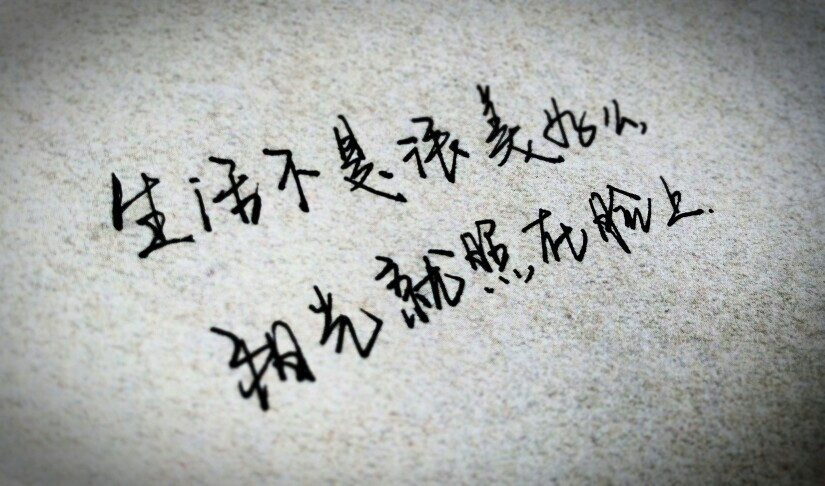 生活不是很美好么,
阳光就照在脸上.